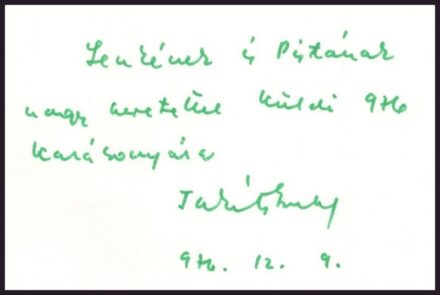 Lenkének és Pistának
nagy szeretettel küldi 976
karácsonyára
976. 12. 9.